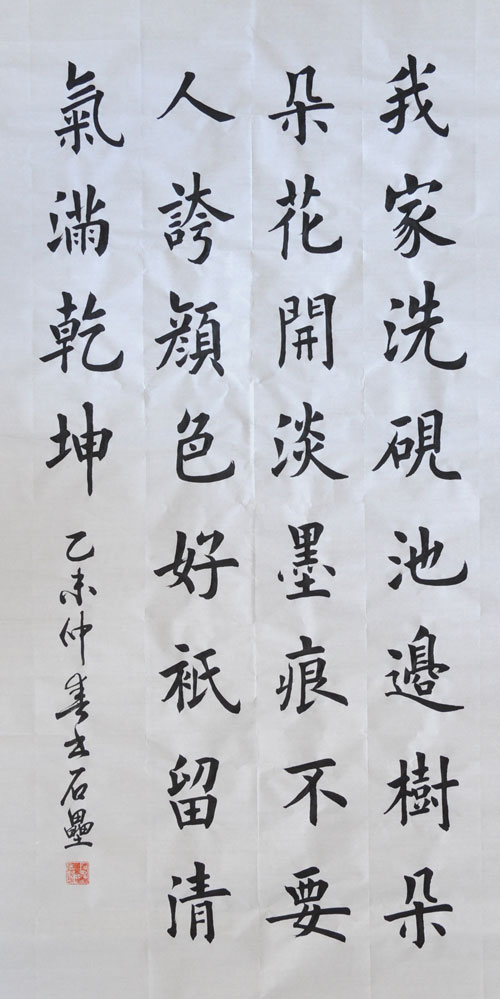 我家洗硯池邊樹朵
朵花開淡墨痕不要
人誇顔色好衹留清
氣滿乾坤
乙未仲春書石壘